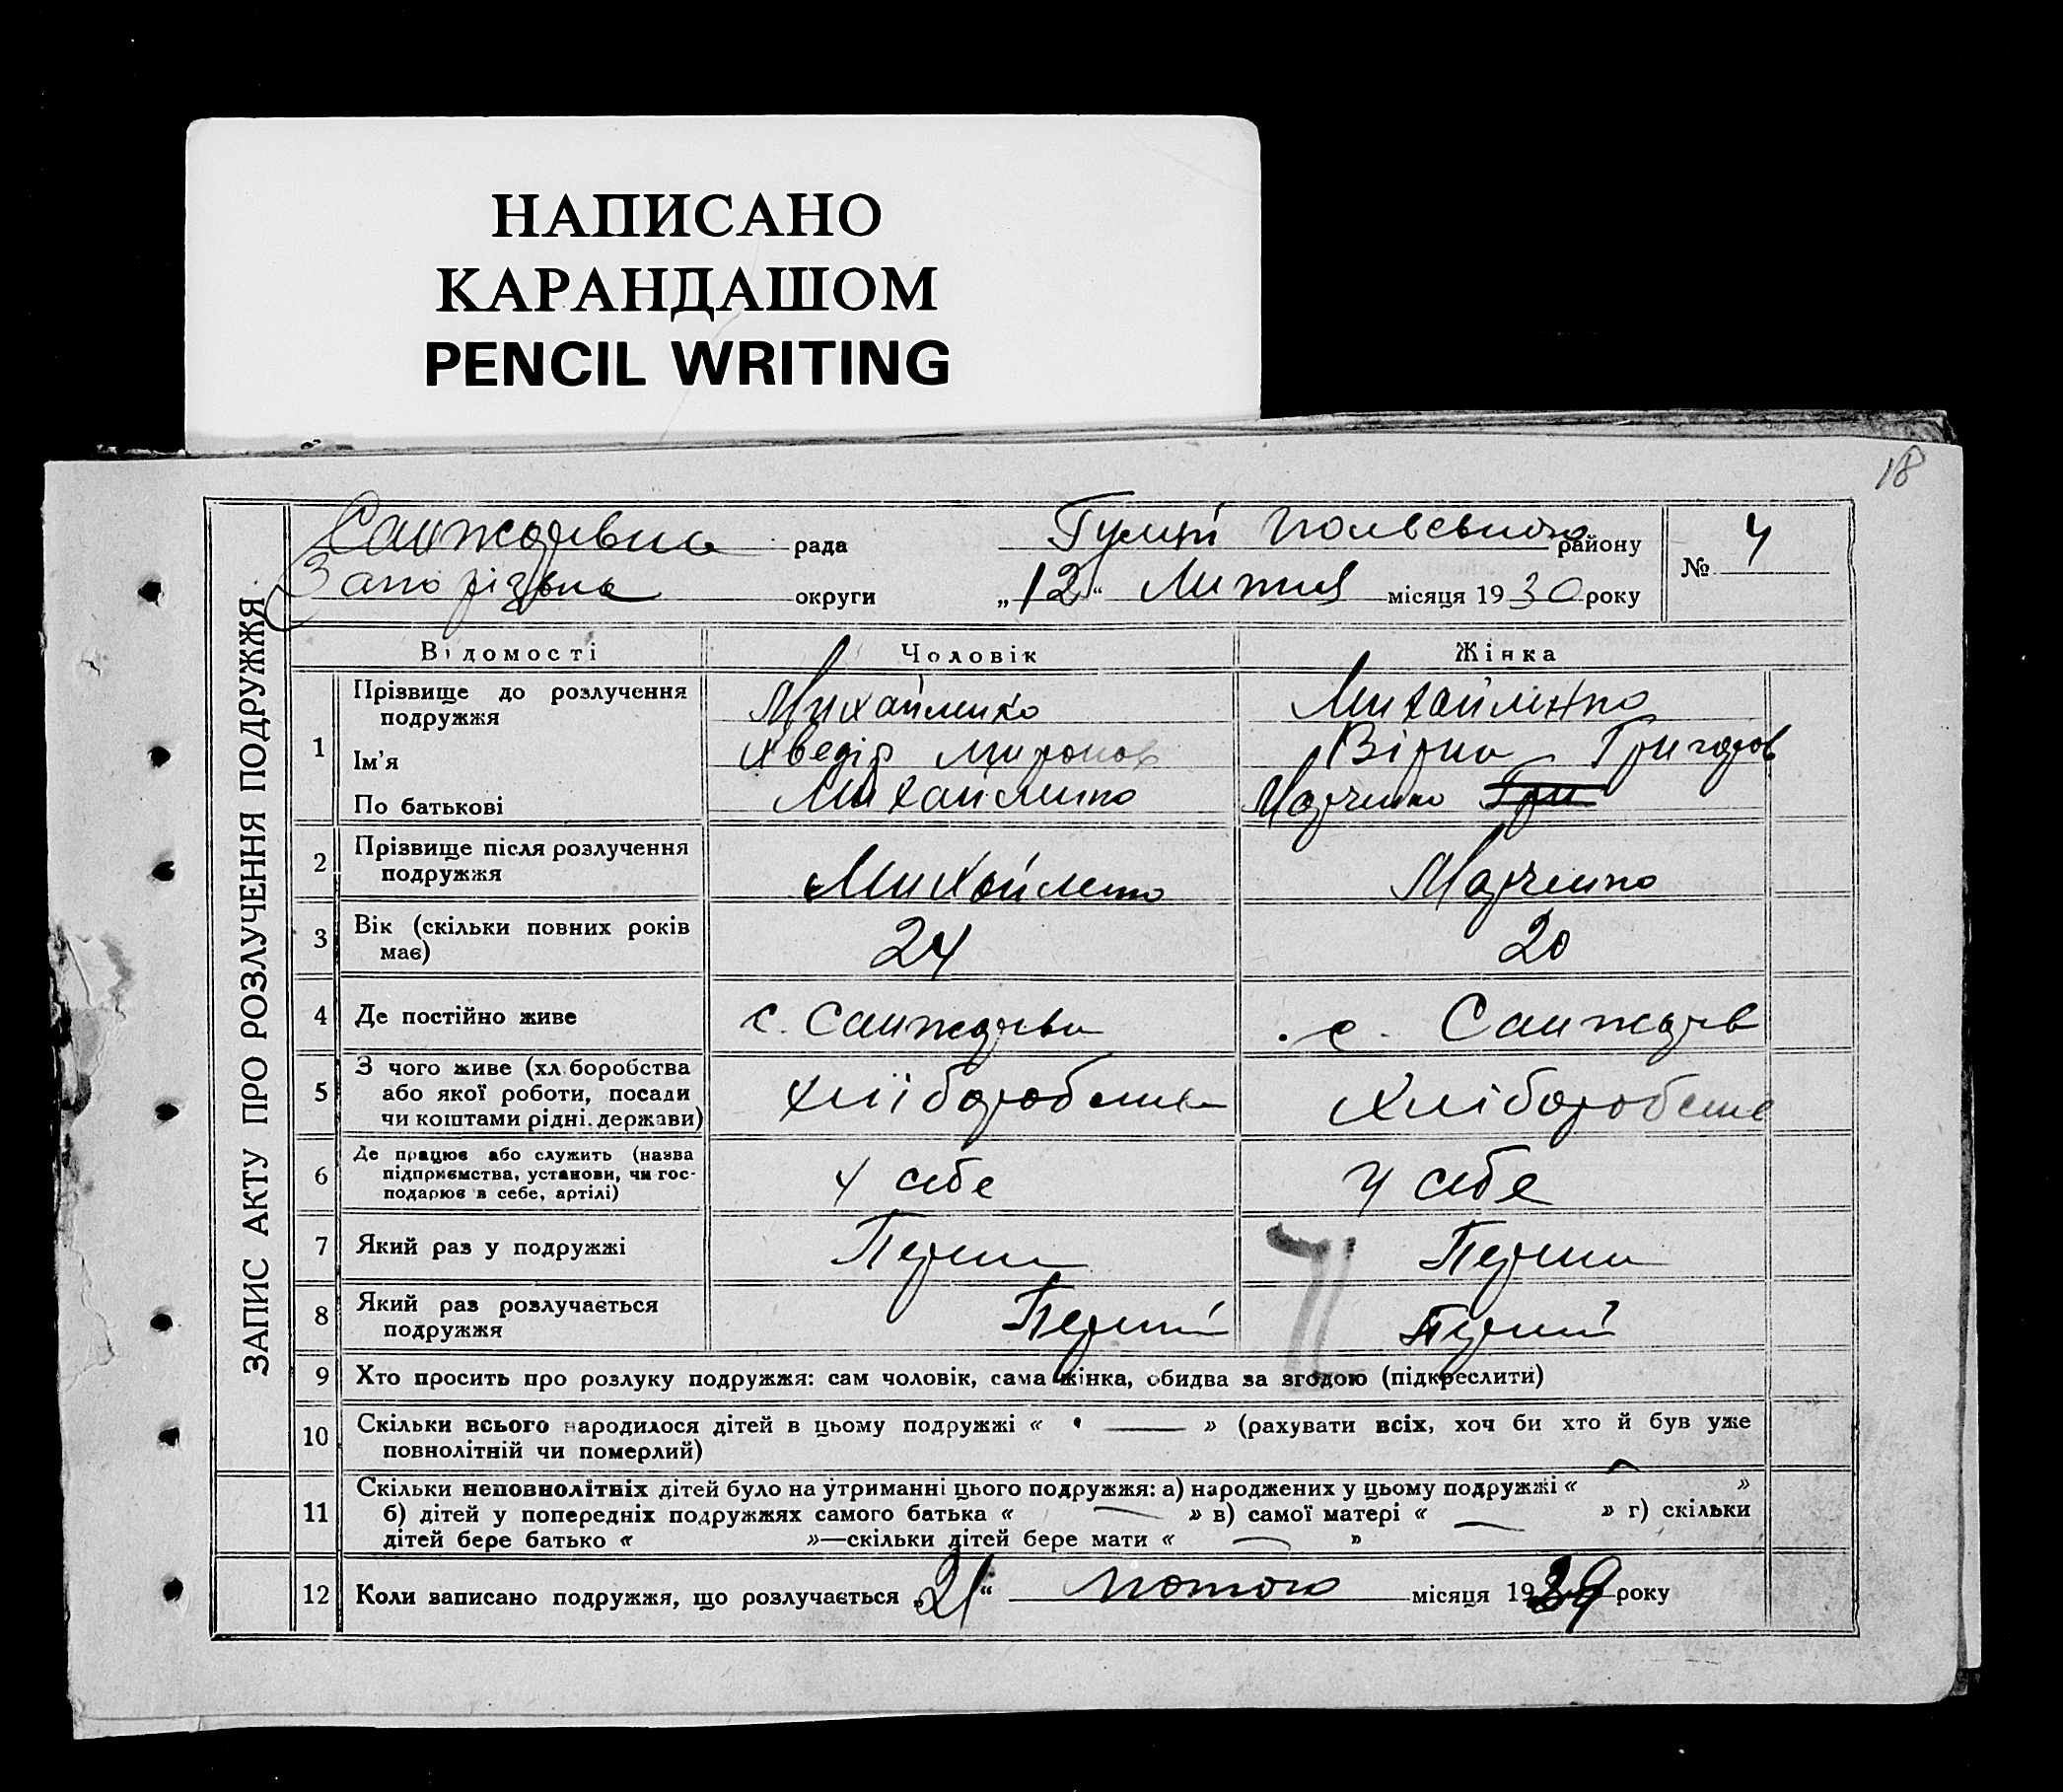 НАПИСАНО
КАРАНДАШОМ
PENCIL WRITING
18
ЗАПИС АКТУ ПРО РОЗЛУЧЕННЯ ПОДРУЖЖЯ
рада Гуляй району
№ 4
Запорізька округи „12“ Липня місяця 1930 року
Відомості Чоловік Жінка
1 Прізвище до розлучення Михайленко Михайленко
подружжя
Ім'я Хведір Миронов Віра Григоров
По батькові Михайленко Марченко Гри
2 Прізвище після розлучення Михайленко Марченко
подружжя
3 Вік (скільки повних років 24 20
має)
4 Де постійно живе с. с.
5 З чого живе (хліборобства
або якої роботи, посади Хліборобства Хліборобства
чи коштами рідні, держави)
6 Де працює або служить (назва
підприємства, установи, чи гос- У себе У себе
подарює в себе, артілі)
7 Який раз у подружжі Перши Перши
8 Який раз розлучається Перший Перший
подружжя
9 Хто просить про розлуку подружжя: сам чоловік, сама жінка, обидва за згодою (підкреслити)
10 Скільки всього народилося дітей в цьому подружжі « — » (рахувати всіх, хоч би хто й був уже
повнолітній чи померлий)
11 Скільки неповнолітніх дітей було на утриманні цього подружжя: а) народжених у цьому подружжі « — »
б) дітей у попередніх подружжях самого батька « — » в) самої матері « — » г) скільки
дітей бере батько « »—скільки дітей бере мати « — »
12 Коли записано подружжя, що розлучається „21“ місяця 1929 року